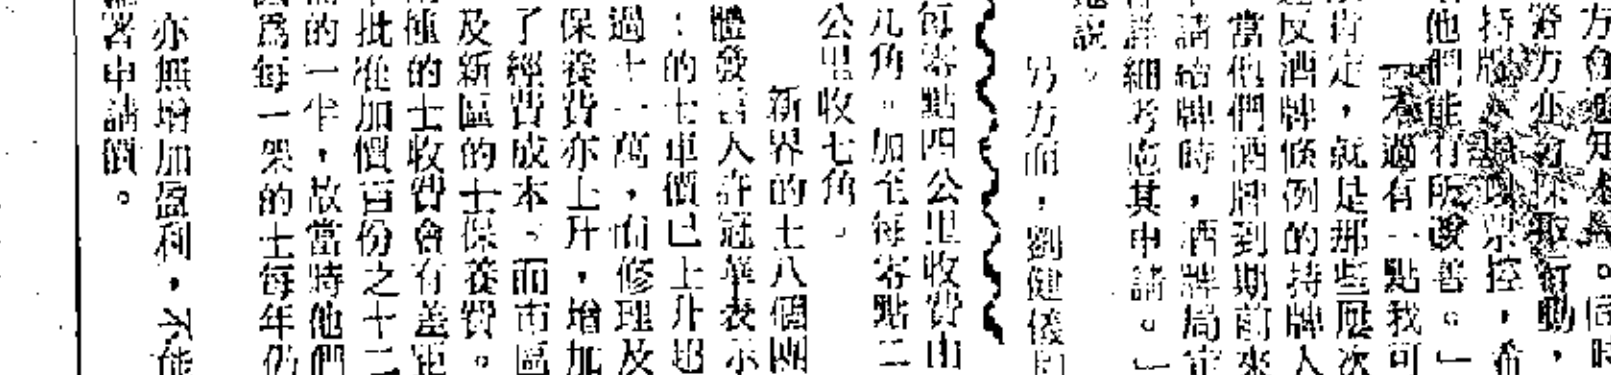 方會通知本局。同時
警方亦會採取行動，
持牌人加以票控，希
他們能有所改善。」
「不過有一點我可
肯定，就是那些屢次
違反酒牌條例的持牌人
當他們酒牌到期前來
請給牌時，酒牌局定
詳細考慮其申請。」
另方面，劉健儀
說。
每零點四公里收費由
几角。加至每零點二
公里收七角。
新界的士八個團
體發言人許冠華表示
：的士車價已上升超
過十一萬，而修理及
保養費亦上升，增加
了經費成本、而市區
及新區的士保養費。
種的士收費會有蓋範
批准加價百份之十二
的一半，故當時他們
爲每一架的士每年仍
亦無增加盈利，不能
署申請價。